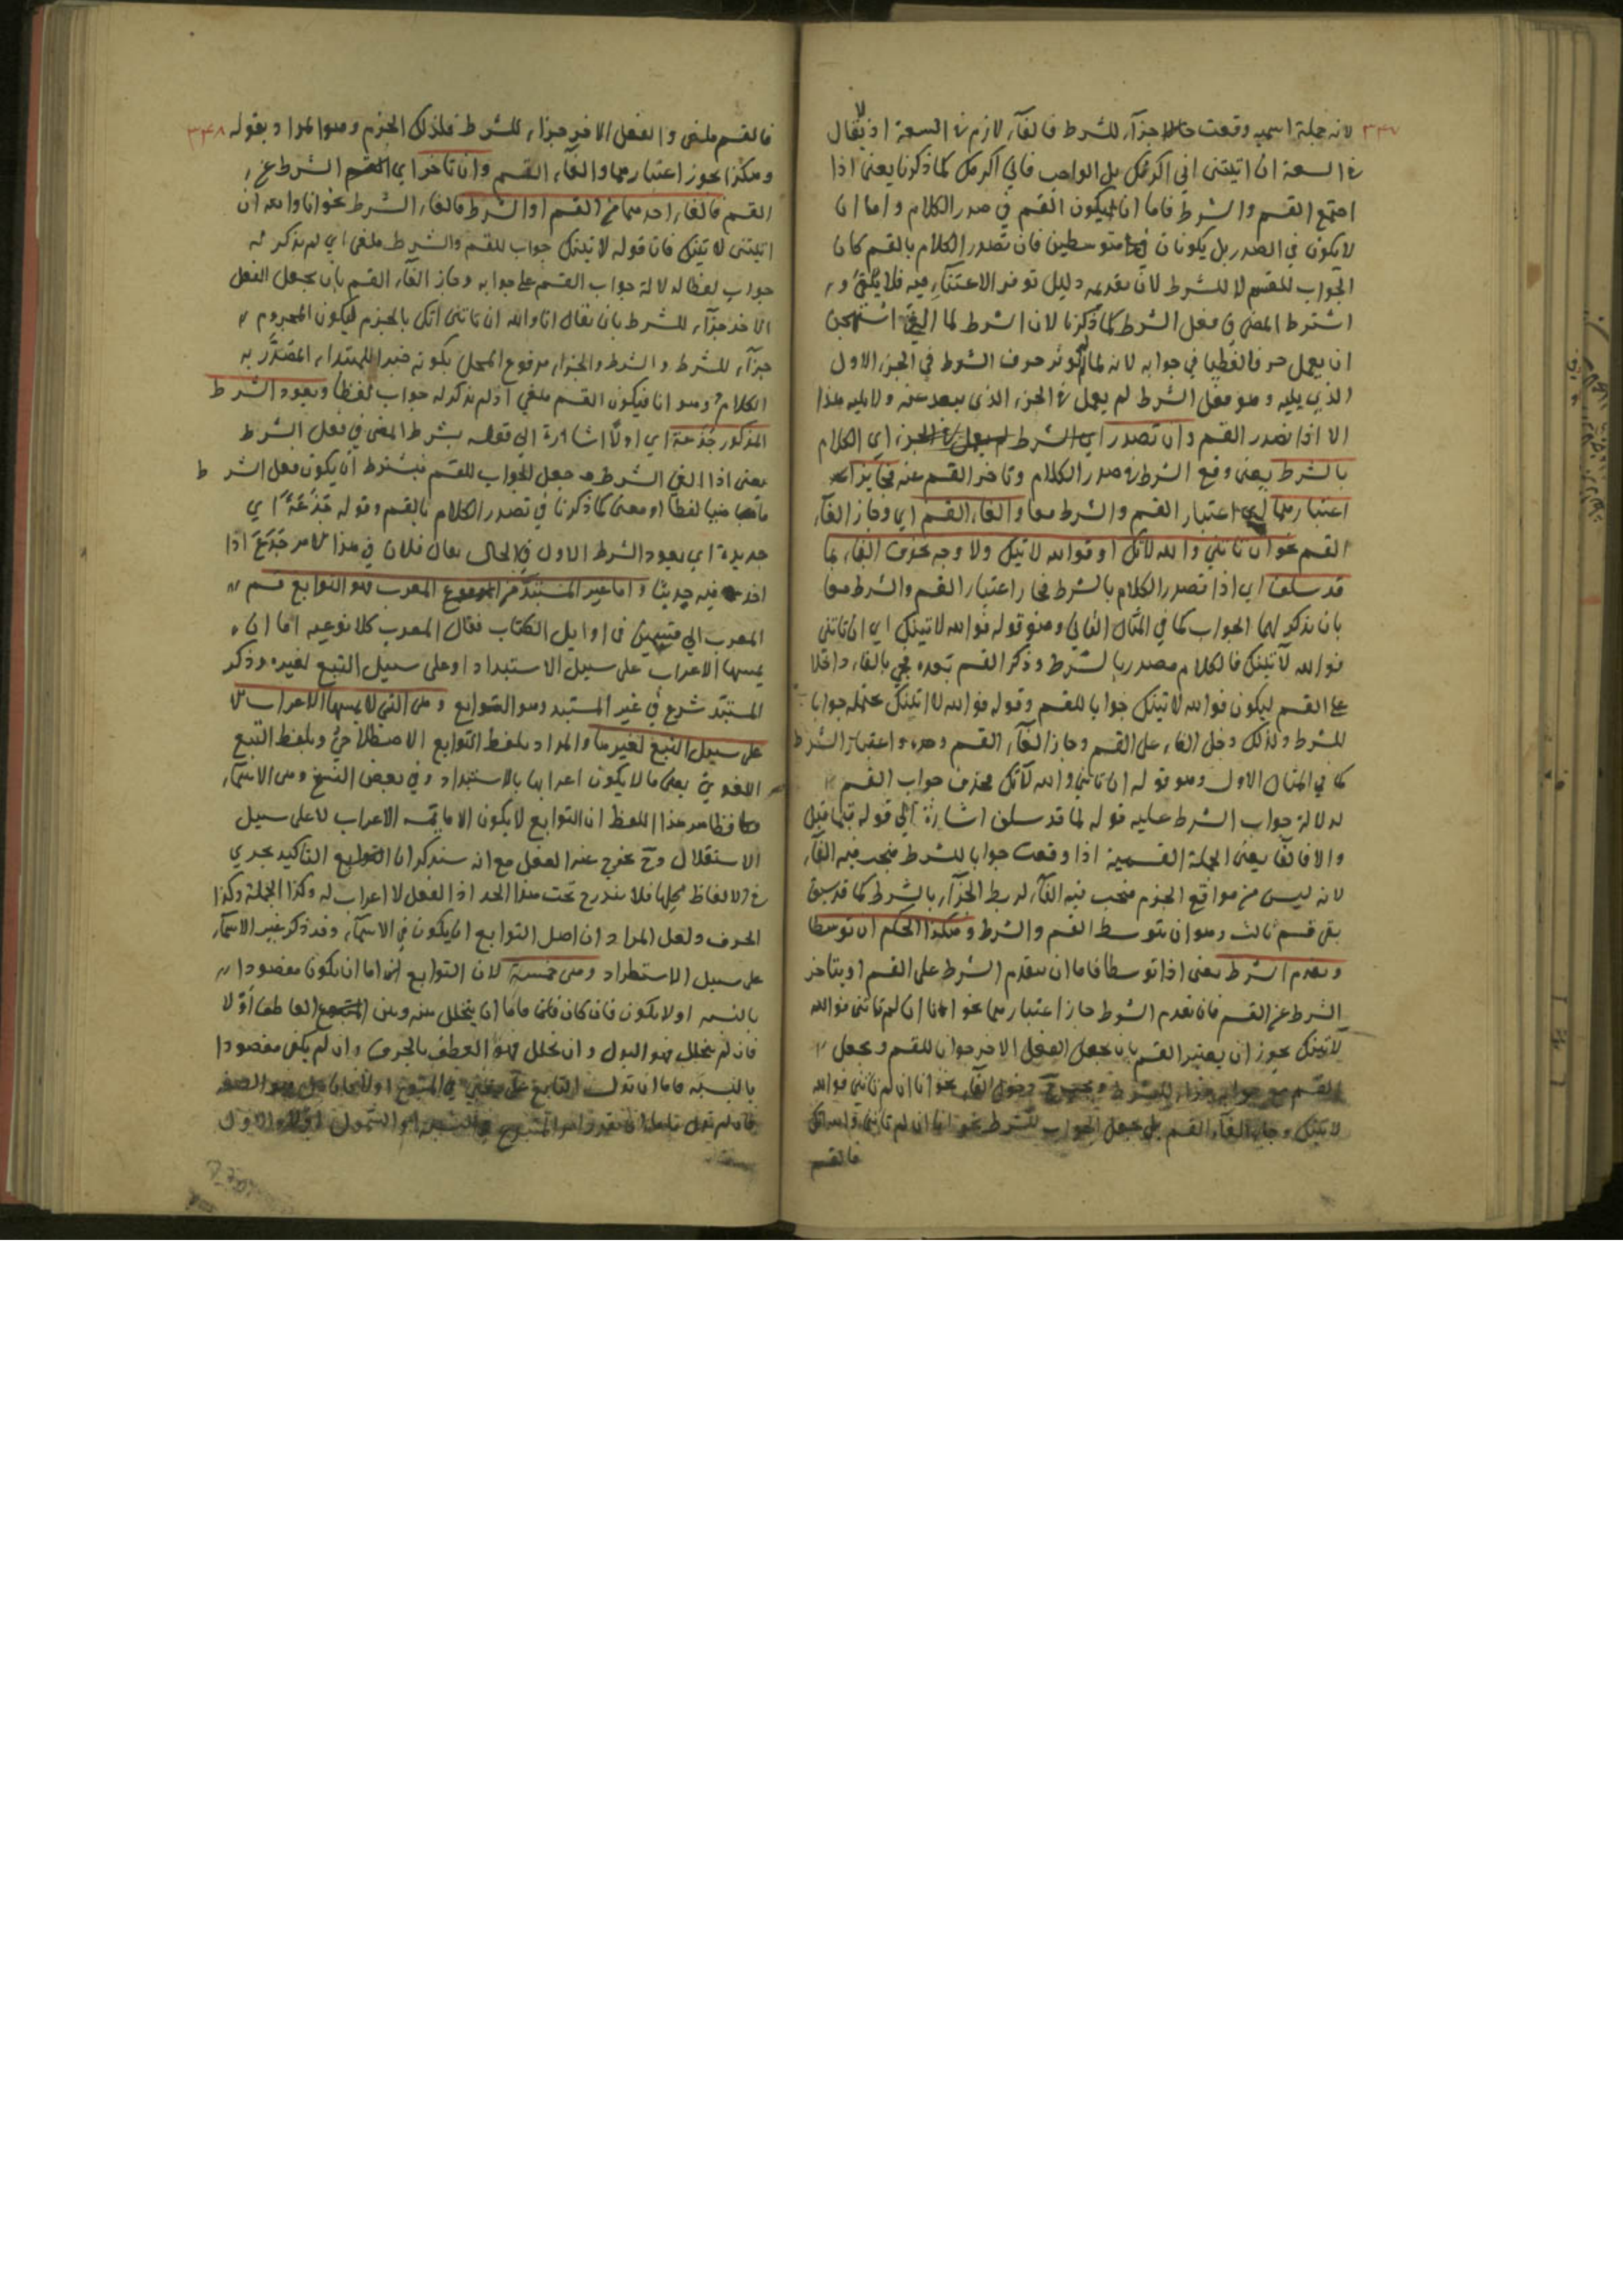 ٣٤٧
لانه جملة اسمية وقعت جزاء للشرط فالفاء لازم في السعة اذ لا يقال
في السعة ان اتيتني اني اكرمك بل الواجب فاني اكرمك كما ذكرنا يعني اذا
اجتمع القسم والشرط فاما ان يكون القسم في صدر الكلام واما ان
لا يكون في الصدر بل يكونان متوسطين فان تصدر الكلام بالقسم كان
الجواب للقسم لا للشرط لان تقديمه دليل توفر الاعتناء فيه فلا يلغى و
اشترط المضي في فعل الشرط كما ذكرنا لان الشرط لما الغي استهجن
ان يعمل حرفا لفظيا في جوابه لانه لما لم يؤثر حرف الشرط في الجزء الاول
الذي يليه وهو فعل الشرط لم يعمل في الجزء الذي يبعد عنه ولا يليه هذا
الا اذا تصدر القسم وان تصدر اي الكلام
بالشرط يعني وقع الشرط في صدر الكلام وتاخر القسم عنه فجايز
اعتبارهما اي اعتبار القسم والشرط معا والغاء القسم اي وجاز الغاء
القسم نحو ان تاتني والله لآتك او فوالله لآتينك ولا وجه بحذف الفاء لما
قد سلف اي اذا تصدر الكلام بالشرط فجاز اعتبار القسم والشرط معا
بان يذكر لهما الجواب كما في المثال الثاني وهو قوله فوالله لآتينك اي ان تاتني
فوالله لآتينك فالكلام مصدر بالشرط وذكر القسم بعده فجي بالفاء داخلا
على القسم ليكون فوالله لآتينك جوابا للقسم وقوله فوالله لآتينك بجملته جوابا
للشرط ولذلك دخل الفاء على القسم وجاز الغاء القسم وحده واعتبار الشرط
كما في المثال الاول وهو قوله ان تاتني والله لآتك بحذف جواب القسم
لدلالة جواب الشرط عليه قوله لما قد سلف اشارة الى قوله فيما قبل
والا فالفاء يعني الجملة القسمية اذا وقعت جوابا للشرط فيجب فيه الفاء
لانه ليس من مواقع الجزم فيجب فيه الفاء لربط الجزاء بالشرط كما قد سبق
بقي قسم ثالث وهو ان يتوسط القسم والشرط وهكذا الحكم ان توسطا
وتقدم الشرط يعني اذا توسطا فاما ان يتقدم الشرط على القسم او يتاخر
الشرط عن القسم فان تقدم الشرط جاز اعتبارهما نحو انا ان لم تاتني فوالله
لآتينك يجوز ان يعتبر القسم بان يجعل الفعل الاخر جوابا للقسم ويجعل
القسم مع جوابه جزاء للشرط دخول الفاء نحو انا ان لم تاتني فوالله
لآتينك وجاز الغاء القسم بل يجعل الجواب للشرط نحو انا ان لم تاتني والله آتك
فالقسم
٣٤٨
فالقسم ملغى والفعل الاخر جزاء للشرط فلذلك الجزم وهو المراد بقوله
وهكذا يجوز اعتبارهما والغاء القسم وان تاخر اي الشرط عن
القسم فالغاء احدهما من القسم او الشرط فالغاء الشرط نحو انا والله ان
اتيتني لآتينك فان قوله لآتينك جواب للقسم والشرط ملغى اي لم يذكر له
جواب لفظا لدلالة جواب القسم على جوابه وجاز الغاء القسم بان يجعل الفعل
الاخر جزاء للشرط بان يقال انا والله ان تاتني آتك بالجزم ليكون المجزوم
جزاء للشرط والشرط والجزاء مرفوع المحل بكونه خبرا للمبتداء المتصدر به
الكلام وهو انا فيكون القسم ملغى اذ لم يذكر له جواب لفظا ويعود الشرط
المذكور جذعة اي اولا اشارة الى قوله بشرط المضي في فعل الشرط
يعني اذا الغي الشرط وجعل الجواب للقسم فيشترط ان يكون فعل الشرط
ماضيا لفظا او معنى كما ذكرنا في تصدر الكلام بالقسم وقوله جذعة اي
جديدة اي يعود الشرط الاول في الحال يقال فلان في هذا الامر جذع اذا
اخذ فيه حديثا واما غير المستبد من المعرب فهو التوابع قسم
المعرب الى قسمين في اوايل الكتاب فقال المعرب كلا نوعيه اما ان
يمسها الاعراب على سبيل الاستبداد او على سبيل التبع لغيره وذكر
المستبد شرع في غير المستبد وهو التوابع وهي التي لا يمسها الاعراب الا
على سبيل التبع لغيرها والمراد بلفظ التوابع الاصطلاحي وبلفظ التبع
اللغوي يعني ما لا يكون اعرابها بالاستبداد وفي بعض النسخ وهي الاسماء
فظاهر هذا اللفظ ان التوابع لا يكون الا ما يمسه الاعراب لا على سبيل
الاستقلال وح يخرج عنه الفعل مع انه سنذكر ان التاكيد يجري
في الالفاظ كلها فلا يندرج تحت هذا الحد اذ الفعل لا اعراب له وكذا الجملة وكذا
الحرف ولعل المراد ان اصل التوابع ان يكون في الاسماء وقد ذكر غير الاسماء
على سبيل الاستطراد وهي خمسة لان التوابع اما ان يكون مقصودا
بالنسبة او لا يكون فان كان فاما ان يتخلل بينه وبين المتبوع العاطف او لا
فان لم يتخلل فهو البدل وان تخلل فهو العطف بالحرف وان لم يكن مقصودا
بالنسبة فاما ان يدل التابع على معنى في المتبوع او لا فان دل فهو الصفة
فان لم يدل فاما ان يقرر امر المتبوع في النسبة او الشمول اولا والاول